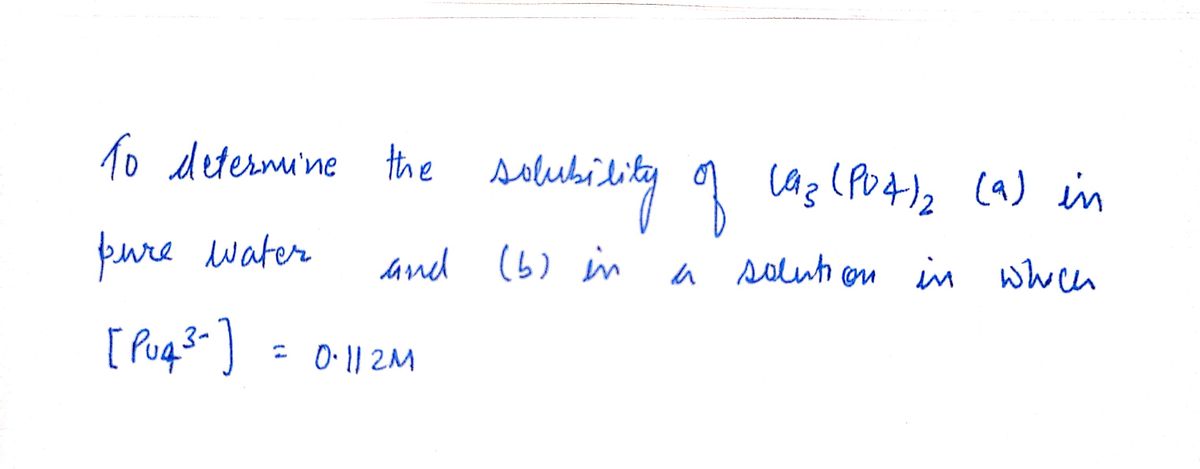 To determine the solubility of Ca₃(PO4)₂ (a) in
pure water and (b) in a solution in which
[PO₄³⁻] = 0.112M